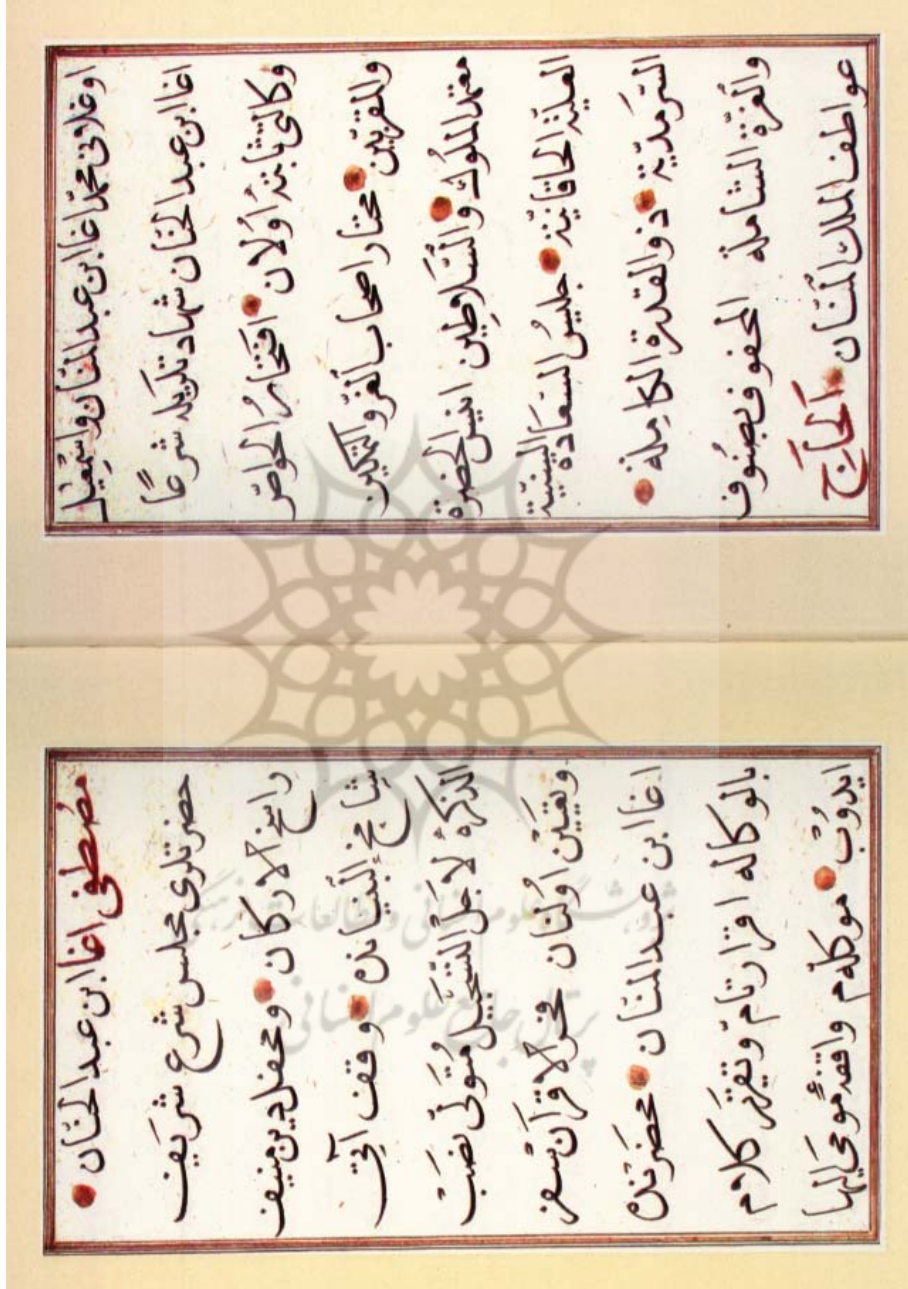 اوغلانى محمد اغا ابن عبد المنان واسمعيل
اغا ابن عبد الحنان شهادتلريله شرعًا
وكالتى ثابته اولان افتخارُ الخواصّ
والمقرّبين مختار اصحاب العزّ والتمكين
معتمد الملوك والسّلاطين انيس الحضرة
العليّة الخاقانيّة جليسُ السعادة السنيّة
السّرمديّة ذو القدرة الكاملة
والعزّة الشاملة المحفوف بصنوف
عواطف الملك المنّان الحاج
مصطفى اغا ابن عبد الحنان
حضرتلرى مجلس شرع شريف
راسخ الاركان ومحفل دين منيف
شامخ البنيانده وقف آتى
الذكره لاجل التسجيل متولّى نصب
وتعيين اولنان فخر الاقران سفر
اغا ابن عبد المنان محضرنده
بالوكاله اقرار تامّ وتقرير كلام
ايدوب موكله م واقفهٔ مومى اليها
پژوهشگاه علوم انسانی و مطالعات فرهنگی
پرتال جامع علوم انسانی